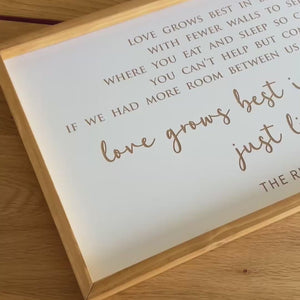 LOVE GROWS BEST IN
WITH FEWER WALLS TO S
WHERE YOU EAT AND SLEEP SO
YOU CAN'T HELP BUT CO
IF WE HAD MORE ROOM BETWEEN US
love grows best i
just li
THE R